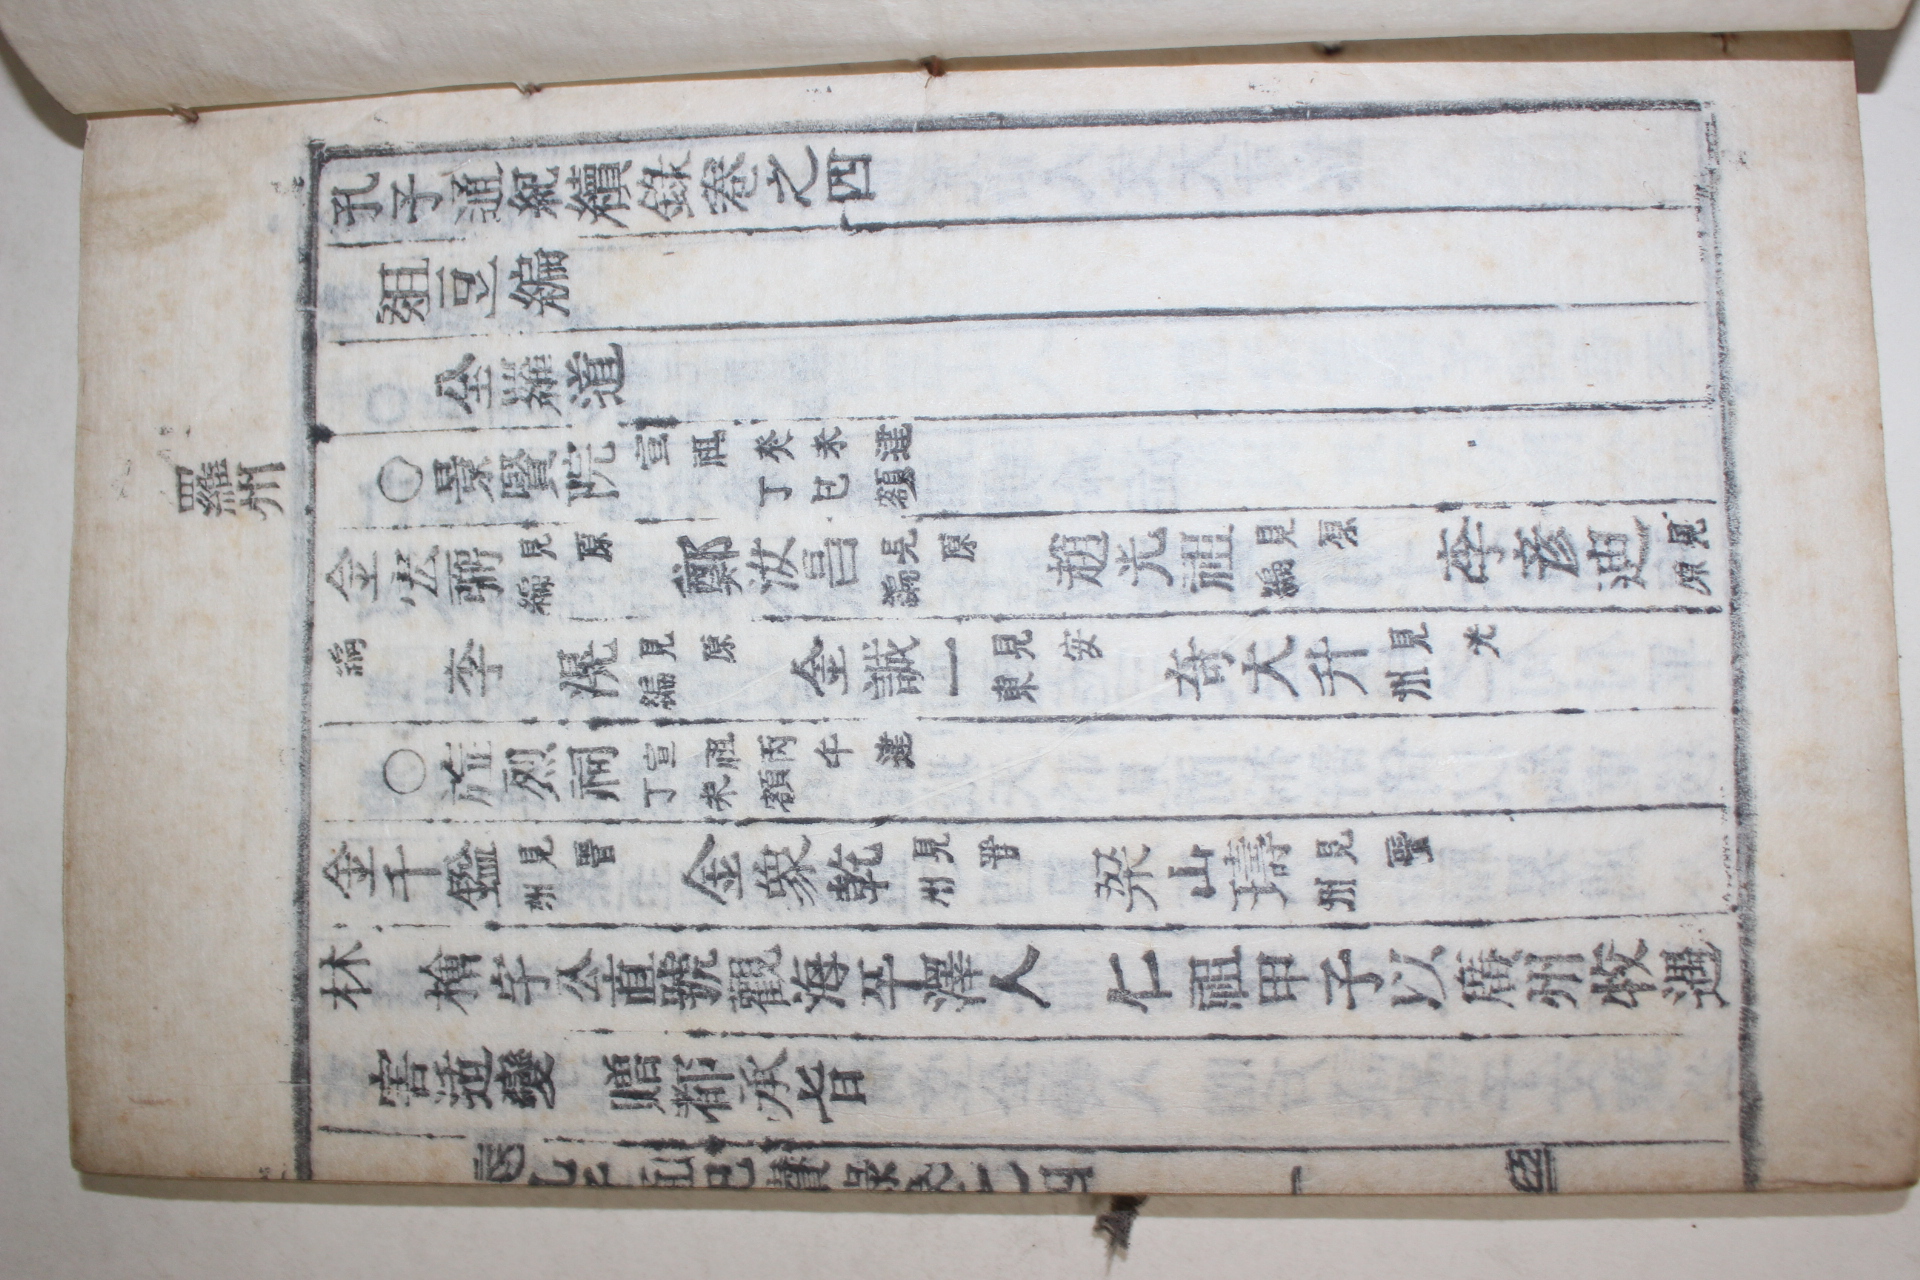 羅州
孔子通紀續錄卷之四
俎豆編
全羅道
○景賢院宣祖癸未建丁巳額
金宏弼見原編 鄭汝昌見原編 趙光祖見原編 李彦迪見原
編 李滉見原編 金誠一見安東 奇大升見光州
○旌烈祠宣祖丙午建丁未額
金千鎰見晋州 金象乾見晋州 梁山璹見晋州
林 檜字公直號觀海平澤人 仁祖甲子以廣州牧遇
害适變 贈都承旨
孔子通紀續錄卷之四 一